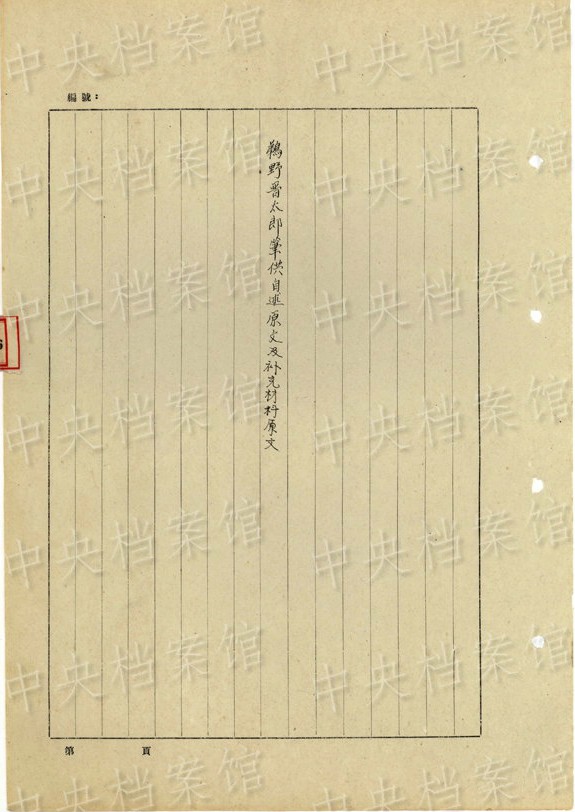 編號：
鵜野晋太郎筆供自述原文及补充材料原文
第 頁
6
中央档案馆
中央档案馆
中央档案馆
中央档案馆
中央档案馆
中央档案馆
中央档案馆
中央档案馆
中央档案馆
中央档案馆
中央档案馆
中央档案馆